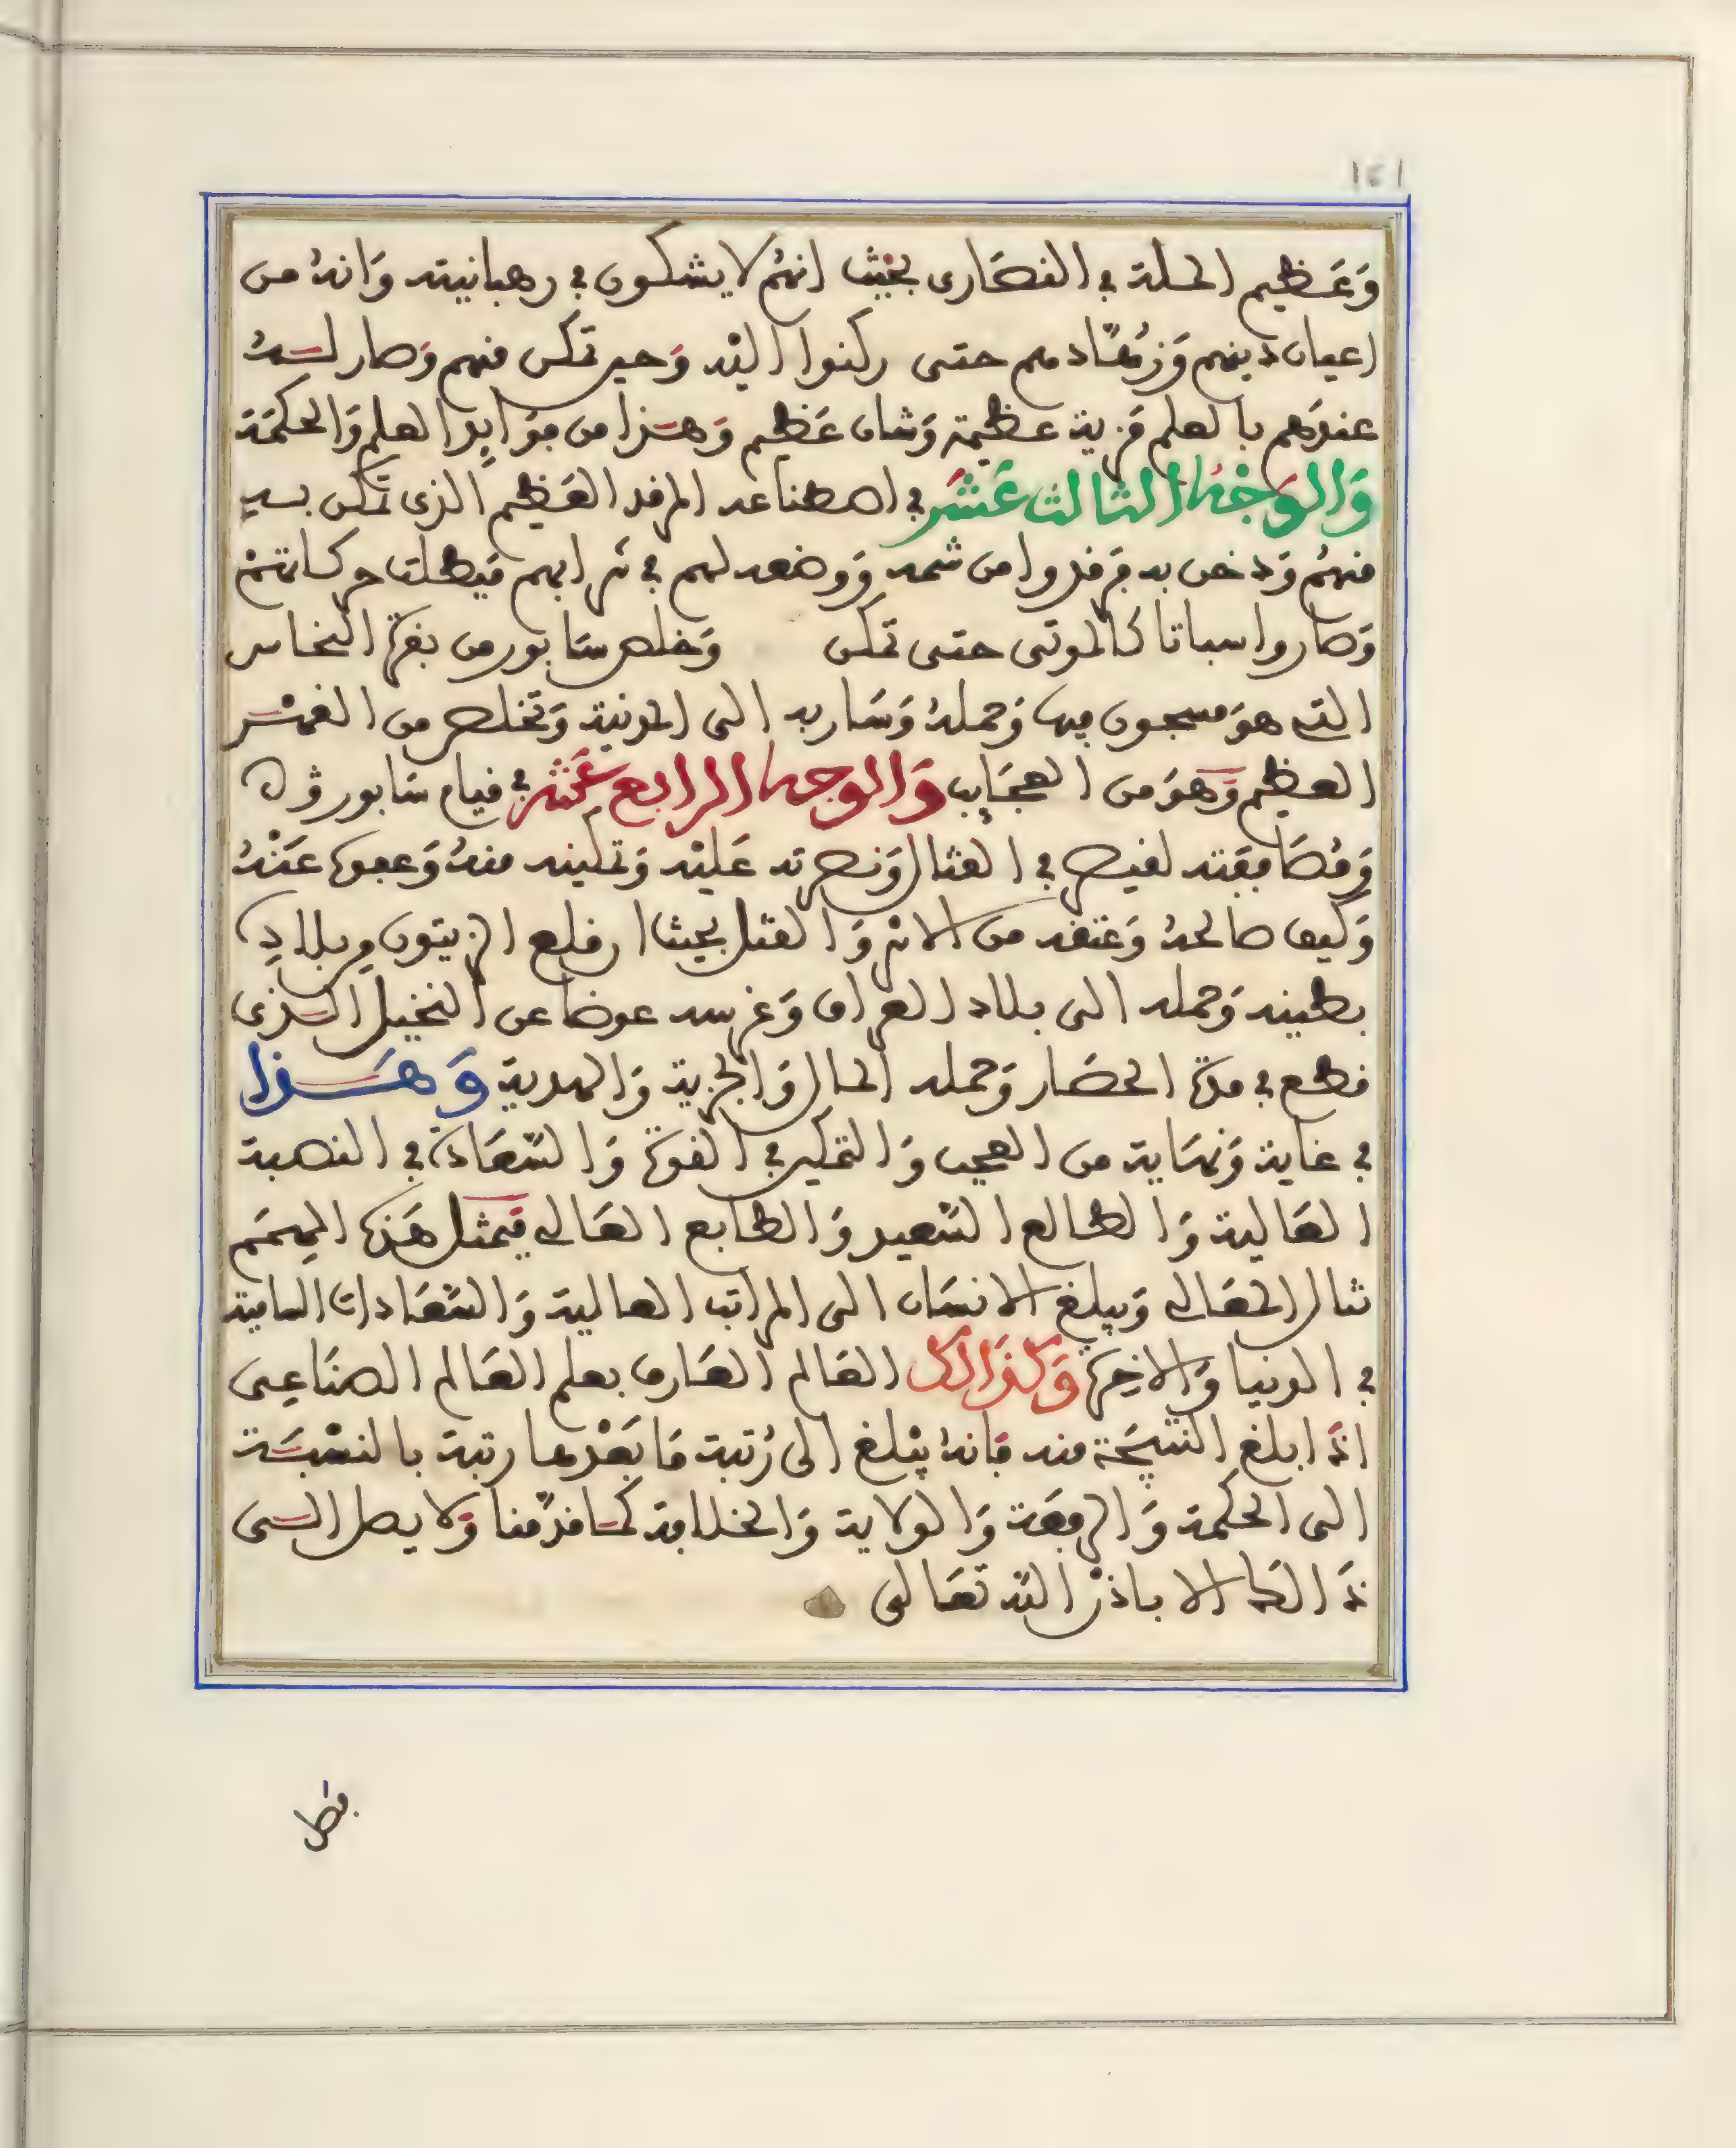 ١٤١
وَعَظيم الحلة في النصَارى بحَيْث انهُم لا يشكون في رهبانيته وَانهُ من
اعيان دينهم وَزُهّاد هم حتى ركنوا اليْه وَحين تمكن منهم وَصار لــهُ
عندَهم بالعلم مَزية عظيمة وَشان عَظيم وَهـذا من فوَايد العلم وَالحكمَة
وَالوَجْهُ الثالث عَشَر في اصطناعه المرقد العَظيم الذى تمكن بــه
منهُم وَدخن به فرقدوا من شمه وَوضعه لهم في شرابهم فبَطلت حركاتهمْ
وَصاروا سباتا كالموتى حتى تمكن وَخلص سَابور من بقرة النحاس
التى هوَ مسجون فيها وَحملهُ وَسَار به الى المدينة وَتخلص من الغمْــر
العظيم وَهوَ من العجَايب وَالوجه الرابع عَشر في قيام سَابور وُه
وَمُصَافقته لقيصر في القتال وَنصرته عَليْه وَتمكينه منهُ وَعفوه عَنْهُ
وَكيف صالحهُ وَعتقه من الاسْر وَالقتل بحيث ا ر قلع الزيتون من بلادِه
بطينه وَحمله الى بلاد العراق وَغرسه عوضا عن النخيل الــذى
قطع في مدة الحصَار وَحمله المال وَالجزية وَالهدية وَهَــذا
في غاية وَنهَاية من العجب وَالتمكين في القوة وَالسّعَادة في النصبة
العَالية وَالطالع السّعيد وَالطابع العَالى فبمثل هَذه الهِمَم
تنال المعَالى وَيبلغ الانسَان الى المراتب العالية وَالسّعَادات السامية
في الدنيا وَالاخِرة وَكذالك العَالم العَارف بعلم العَالم الصنَاعِى
اذَا بلغ النتيجَة منه فَانهُ يبْلغ الى رُتبة مَا بَعْدها رتبة بالنسْبَــة
الى الحكمة وَالرفعَة وَالولاية وَالخلافة كمــا قدّمنا وَلا يصل الــى
ذَالك الا باذن اللّه تعَالى
فصل